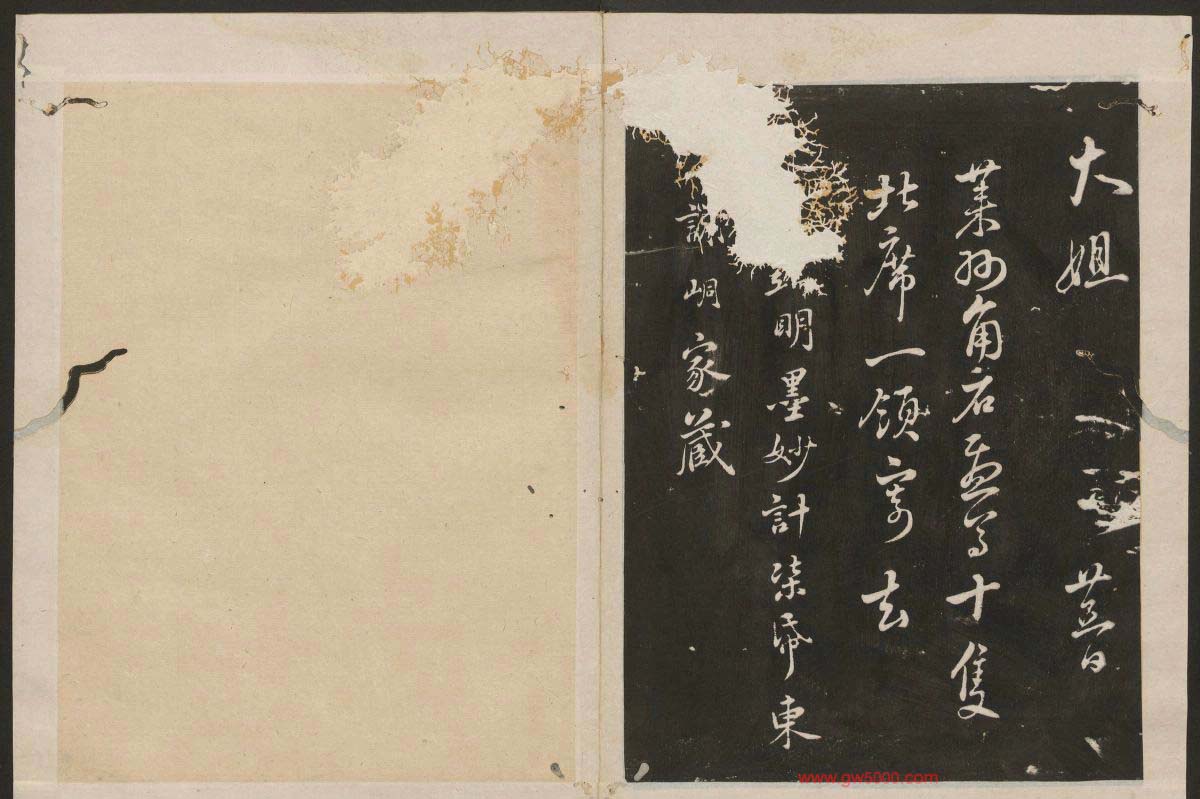 大姐 廿五日
石十隻
北席一領寄去
明墨妙計柒帋東
謝峒家蔵
www.gw5000.com